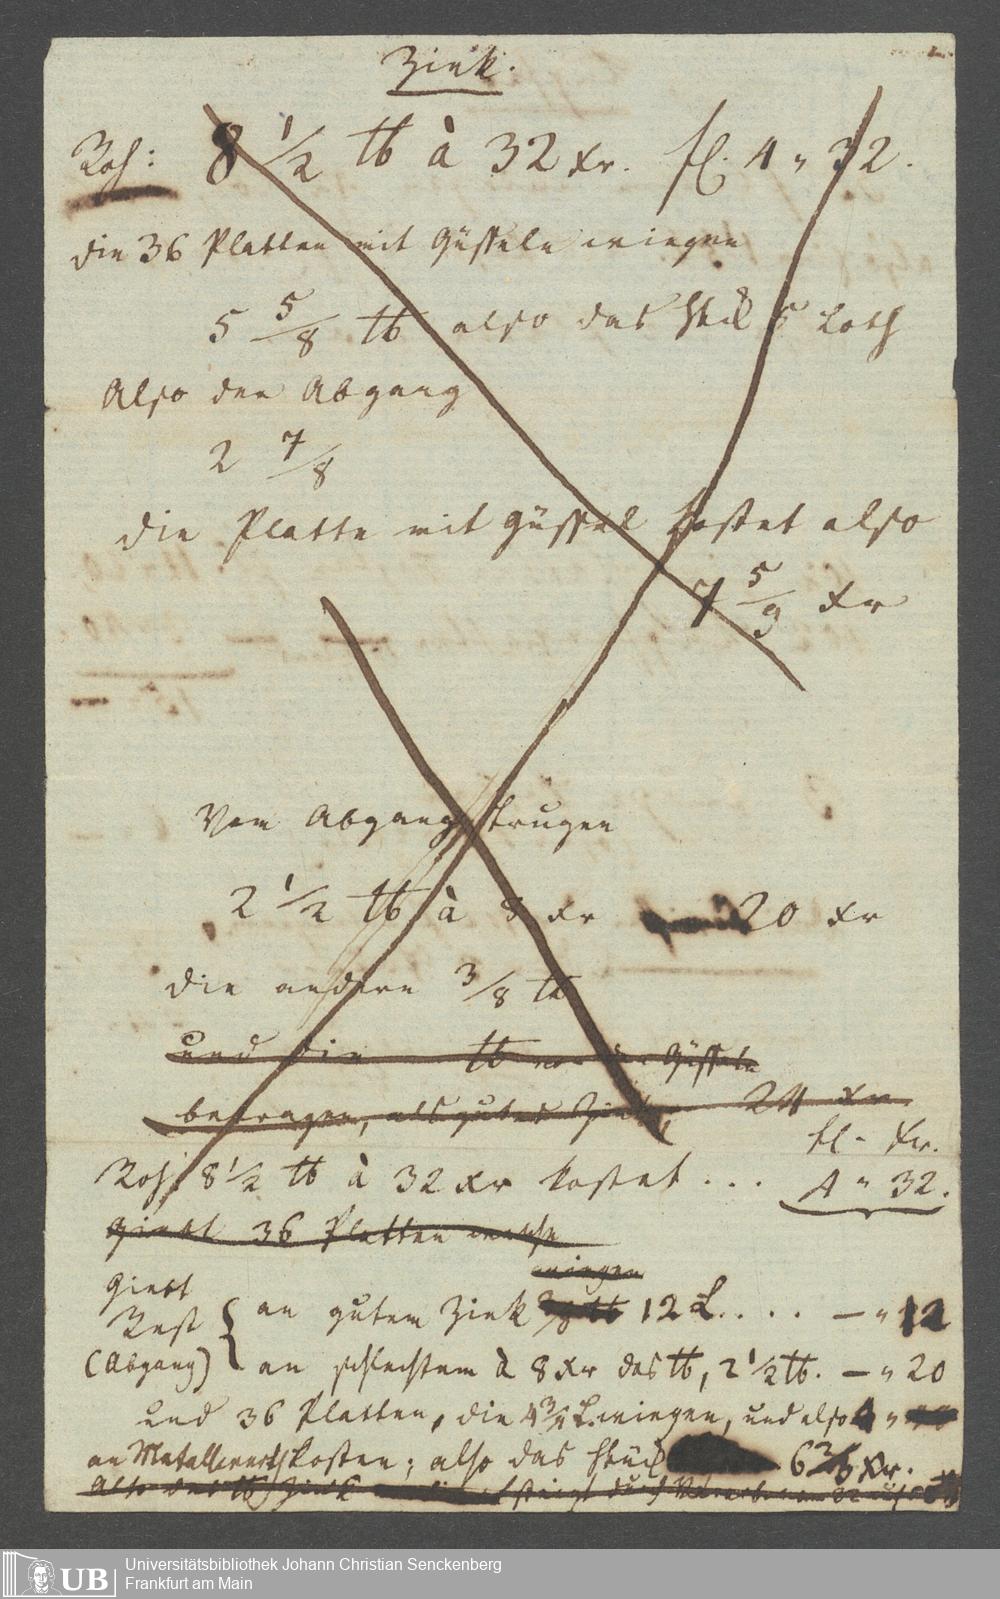 Zink.
Roh: 8 1/2 ℔ à 32 xr. fl. 4 „ 32.
die 36 Platten mit Güsseln wiegen
5 5/8 ℔ also das Stück 5 Loth
Also der Abgang
2 7/8
die Platte mit Güssel kostet also
7 5/9 xr
Vom Abgang trugen
2 1/2 ℔ à 8 xr 20 xr
die andern 3/8 ℔
und die ℔ von den Güsseln
betragen, als gutes Zink, 24 xr.
fl. xr.
Roh 8 1/2 ℔ à 32 xr kostet ... 4 „ 32.
Giebt 36 Platten welche
wiegen
Giebt
Rest { an gutem Zink 3/8 ℔ 12 L. . . . . — „ 12
(Abgang) an schlechtem à 8 xr das ℔, 2 1/2 ℔. — „ 20
und 36 Platten, die 4 3/4 L. wiegen, und also 4 „
an Metallwerth kosten; also das Stück 6 2/3 xr.
Also das ℔ Zink steigt durch
Universitätsbibliothek Johann Christian Senckenberg
Frankfurt am Main
UB